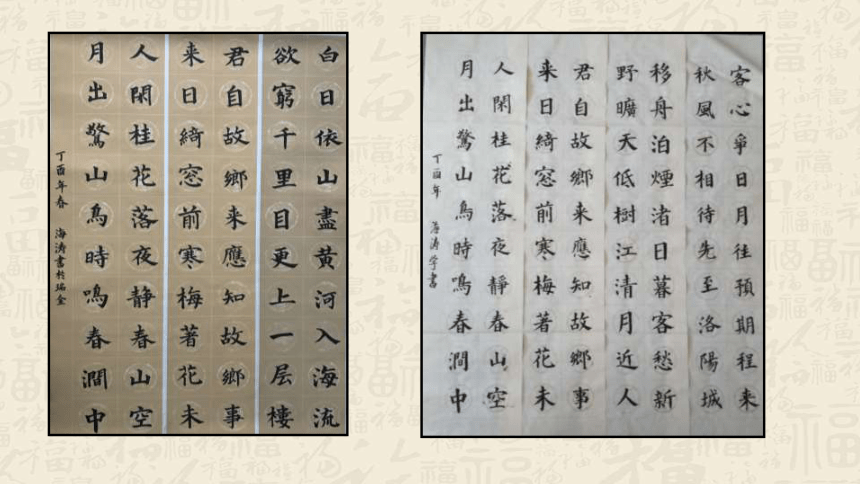 白日依山盡黄河入海流
欲窮千里目更上一层樓
君自故鄉来應知故鄉事
来日綺窓前寒梅著花未
人閑桂花落夜静春山空
月出驚山鳥時鳴春澗中
丁酉年春 海涛書於瑞金
客心爭日月往預期程来
秋風不相待先至洛陽城
移舟泊煙渚日暮客愁新
野曠天低樹江清月近人
君自故鄉来應知故鄉事
来日綺窓前寒梅著花未
人閑桂花落夜靜春山空
月出驚山鳥時鳴春澗中
丁酉年 海涛学書